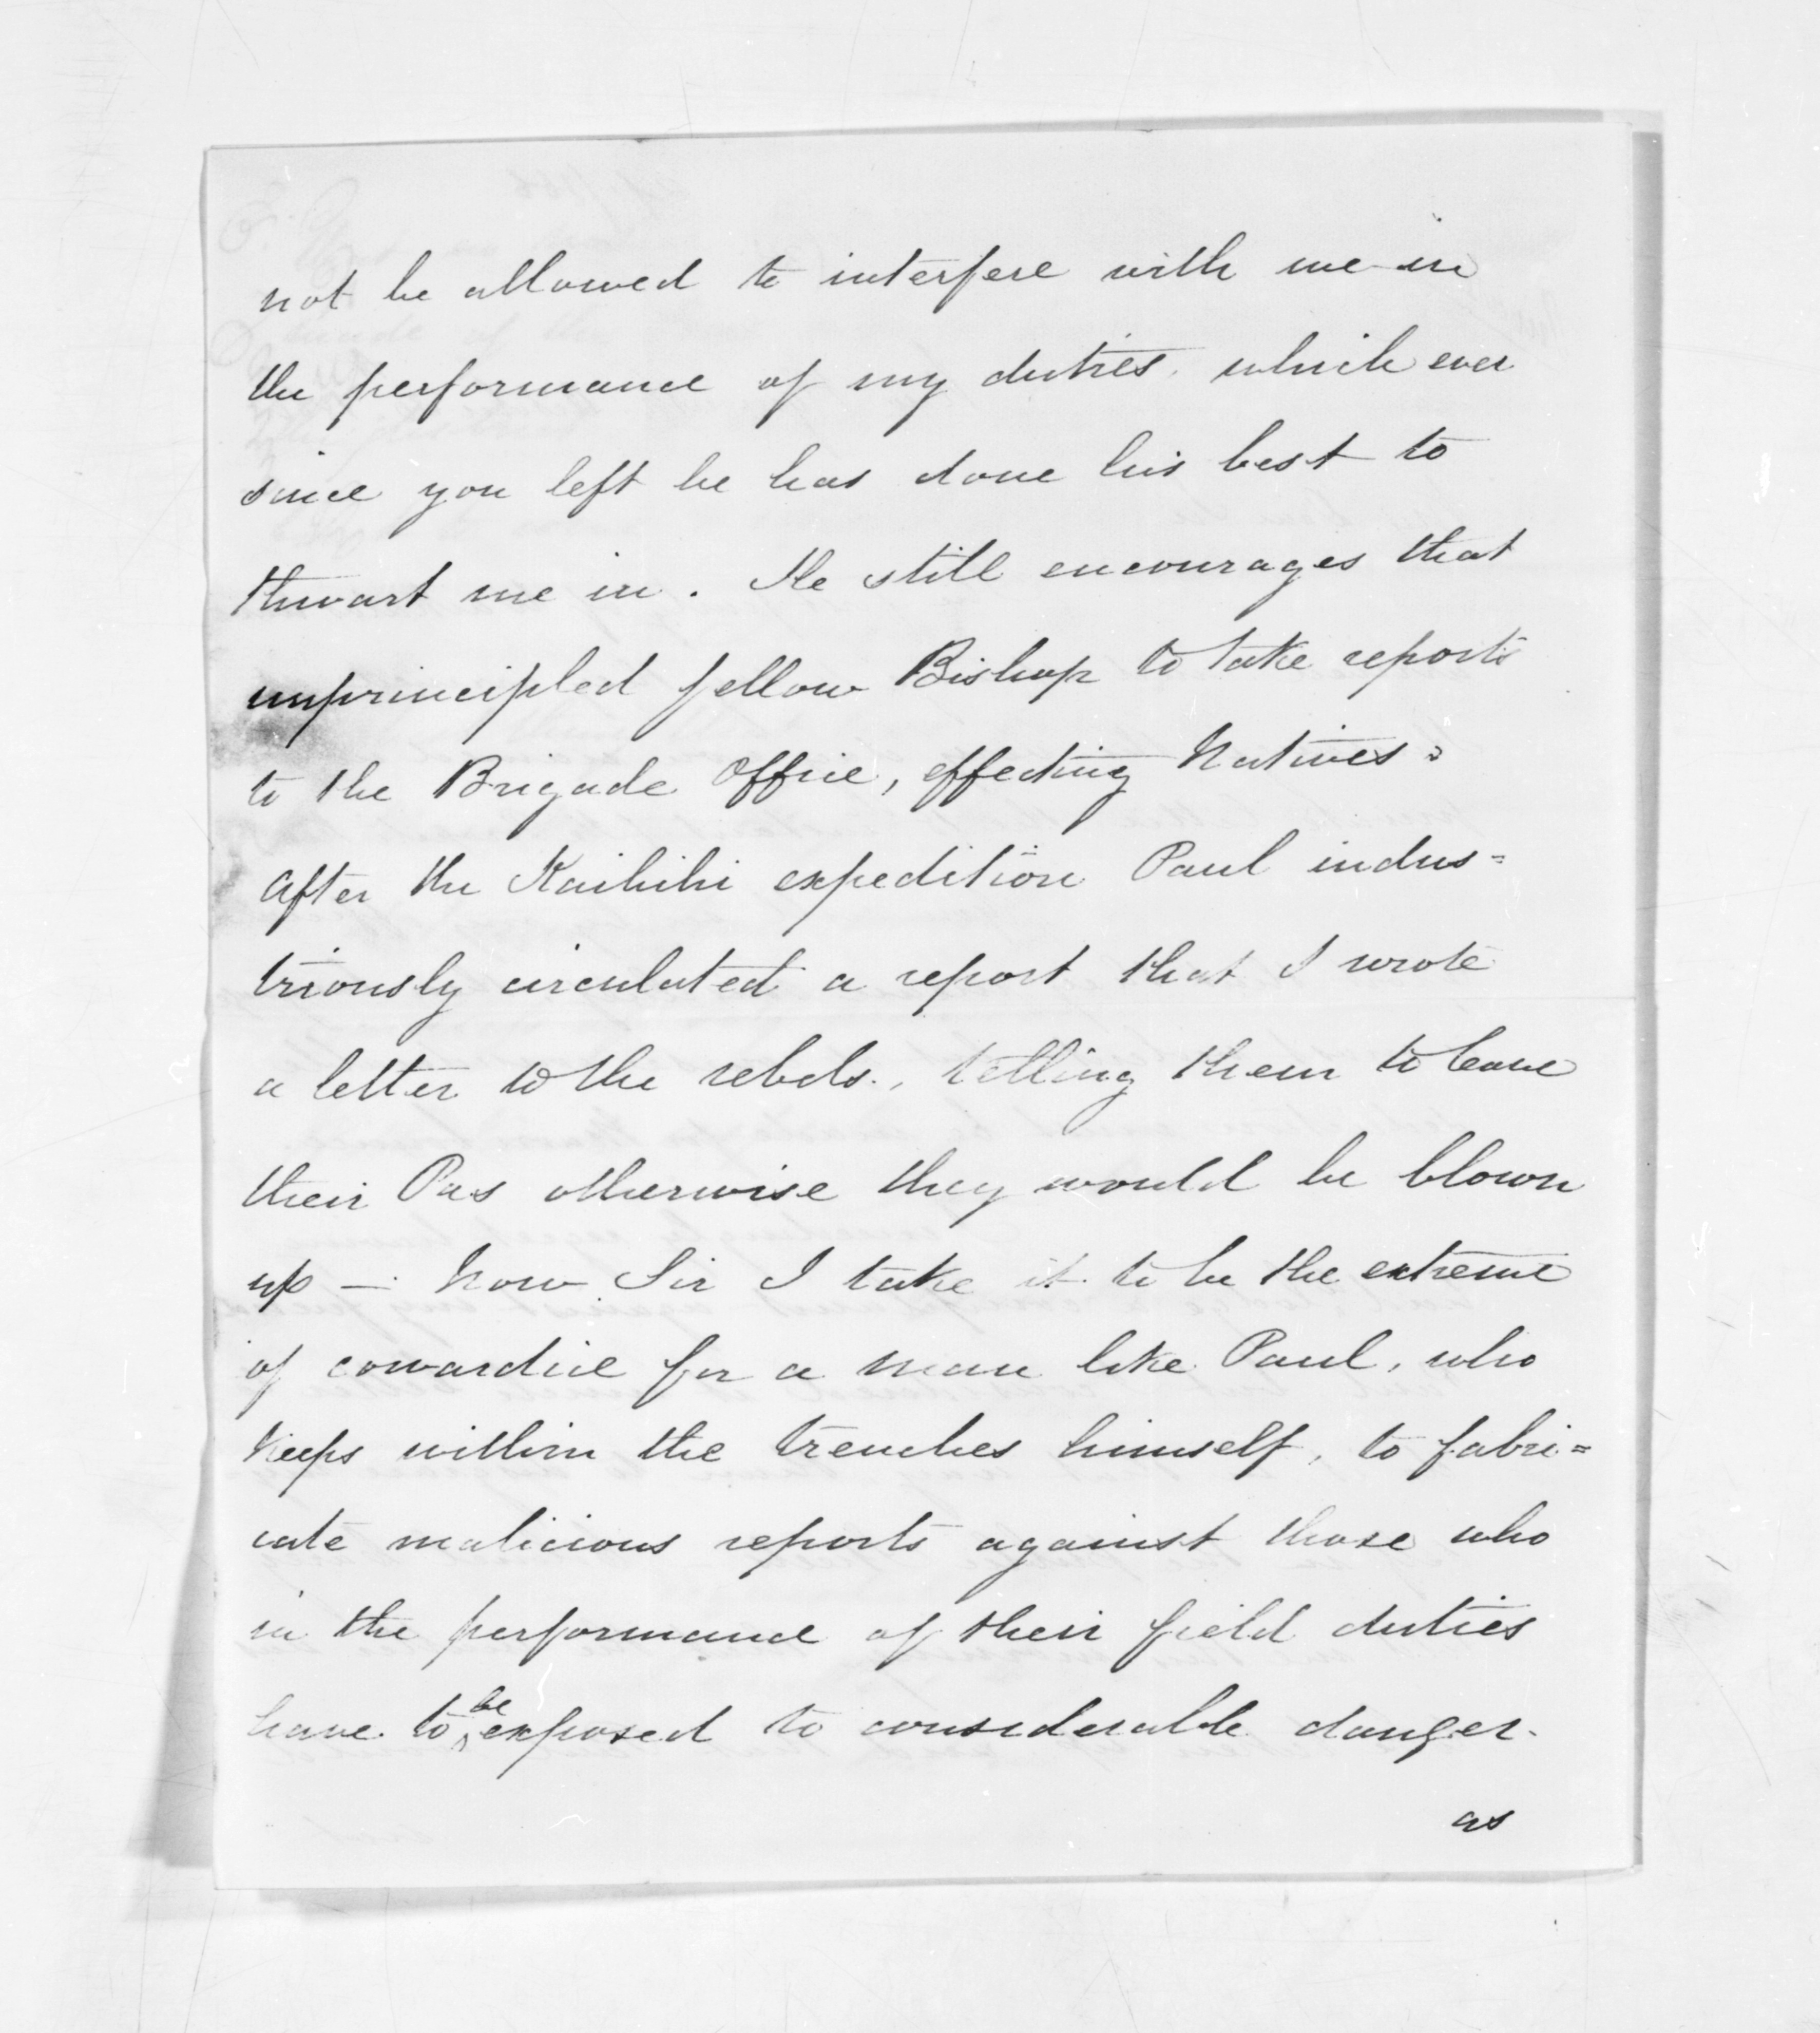 not be allowed to interfere with me in
the performance of my duties. which ever
since you left he has done his best to
thwart me in. He still encourages that
unprincipled fellow Bishop to take reports
to the Brigade Office, effecting Natives =
After the Kaihihi expedition Paul indus=
triously circulated a report that I wrote
a letter to the rebels., telling them to leave
their Pas otherwise they would be blown
up — Now Sir I take it to be the extreme
of cowardice for a man like Paul, who
keeps within the trenches himself, to fabri=
cate malicious reports against those who
in the performance of their field duties
have to be exposed to considerable danger.
as